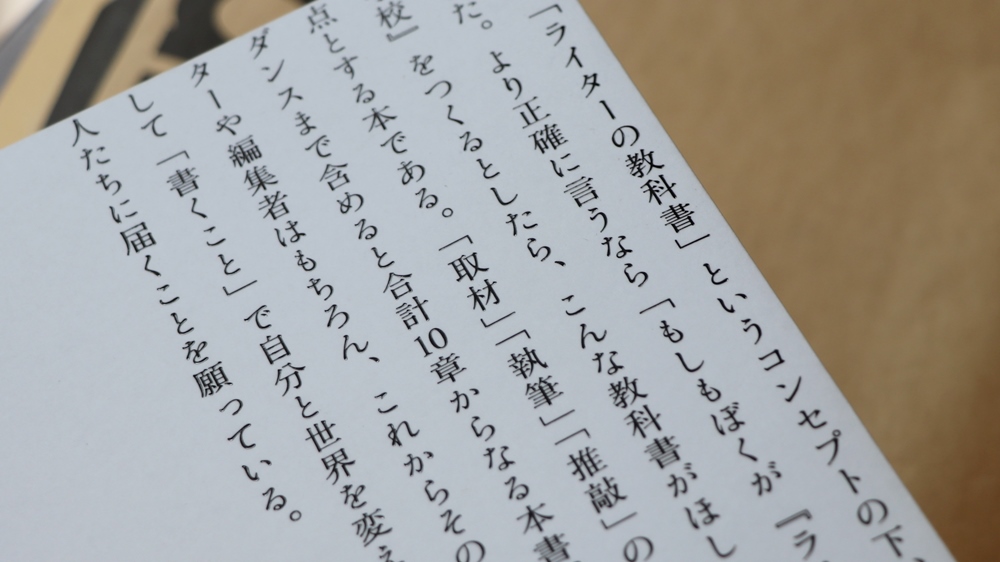 「ライターの教科書」というコンセプトの下、
た。より正確に言うなら「もしもぼくが『ラ
校』をつくるとしたら、こんな教科書がほし
点とする本である。「取材」「執筆」「推敲」の
ダンスまで含めると合計10章からなる本書
ターや編集者はもちろん、これからその
して「書くこと」で自分と世界を変え
人たちに届くことを願っている。